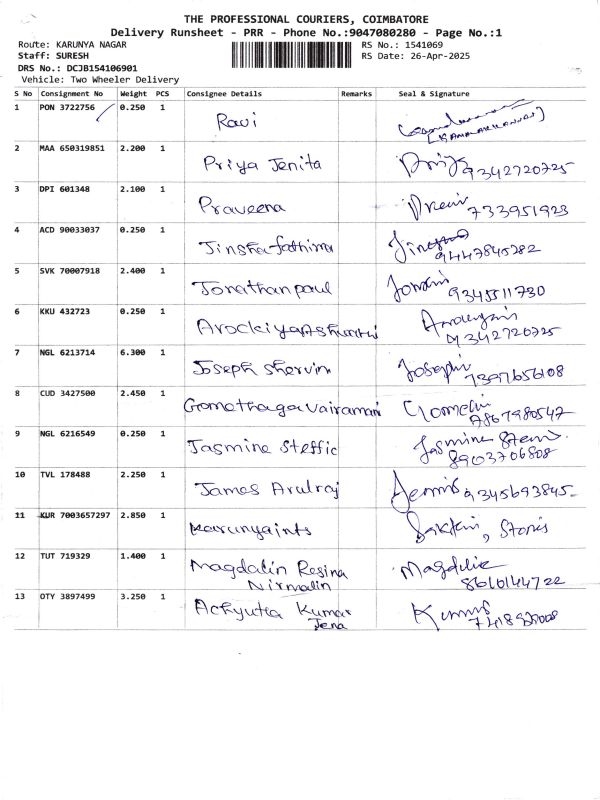 THE PROFESSIONAL COURIERS, COIMBATORE
Delivery Runsheet - PRR - Phone No.:9047080280 - Page No.:1
Route: KARUNYA NAGAR RS No.: 1541069
Staff: SURESH RS Date: 26-Apr-2025
DRS No.: DCJB154106901
Vehicle: Two Wheeler Delivery
S No Consignment No Weight PCS Consignee Details Remarks Seal & Signature
1 PON 3722756 0.250 1 Ravi
2 MAA 650319851 2.200 1 Priya Jenita Priya 9342720725
3 DPI 601348 2.100 1 Praveena 733951923
4 ACD 90033037 0.250 1 Jinsha fathima 9447845282
5 SVK 70007918 2.400 1 Jonathan paul 9345511730
6 KKU 432723 0.250 1 9342720725
7 NGL 6213714 6.300 1 Joseph Shervin Joseph 7397656108
8 CUD 3427500 2.450 1 Gomathagavairamani 7867980547
9 NGL 6216549 0.250 1 Jasmine Steffic Jasmine 8903706808
10 TVL 178488 2.250 1 James Arulraj 9345693845
11 KUR 7003657297 2.850 1 Karunyaints
12 TUT 719329 1.400 1 Magdalin Regina
Nirmalin 8610144722
13 OTY 3897499 3.250 1 Achyuta Kumar
Jena